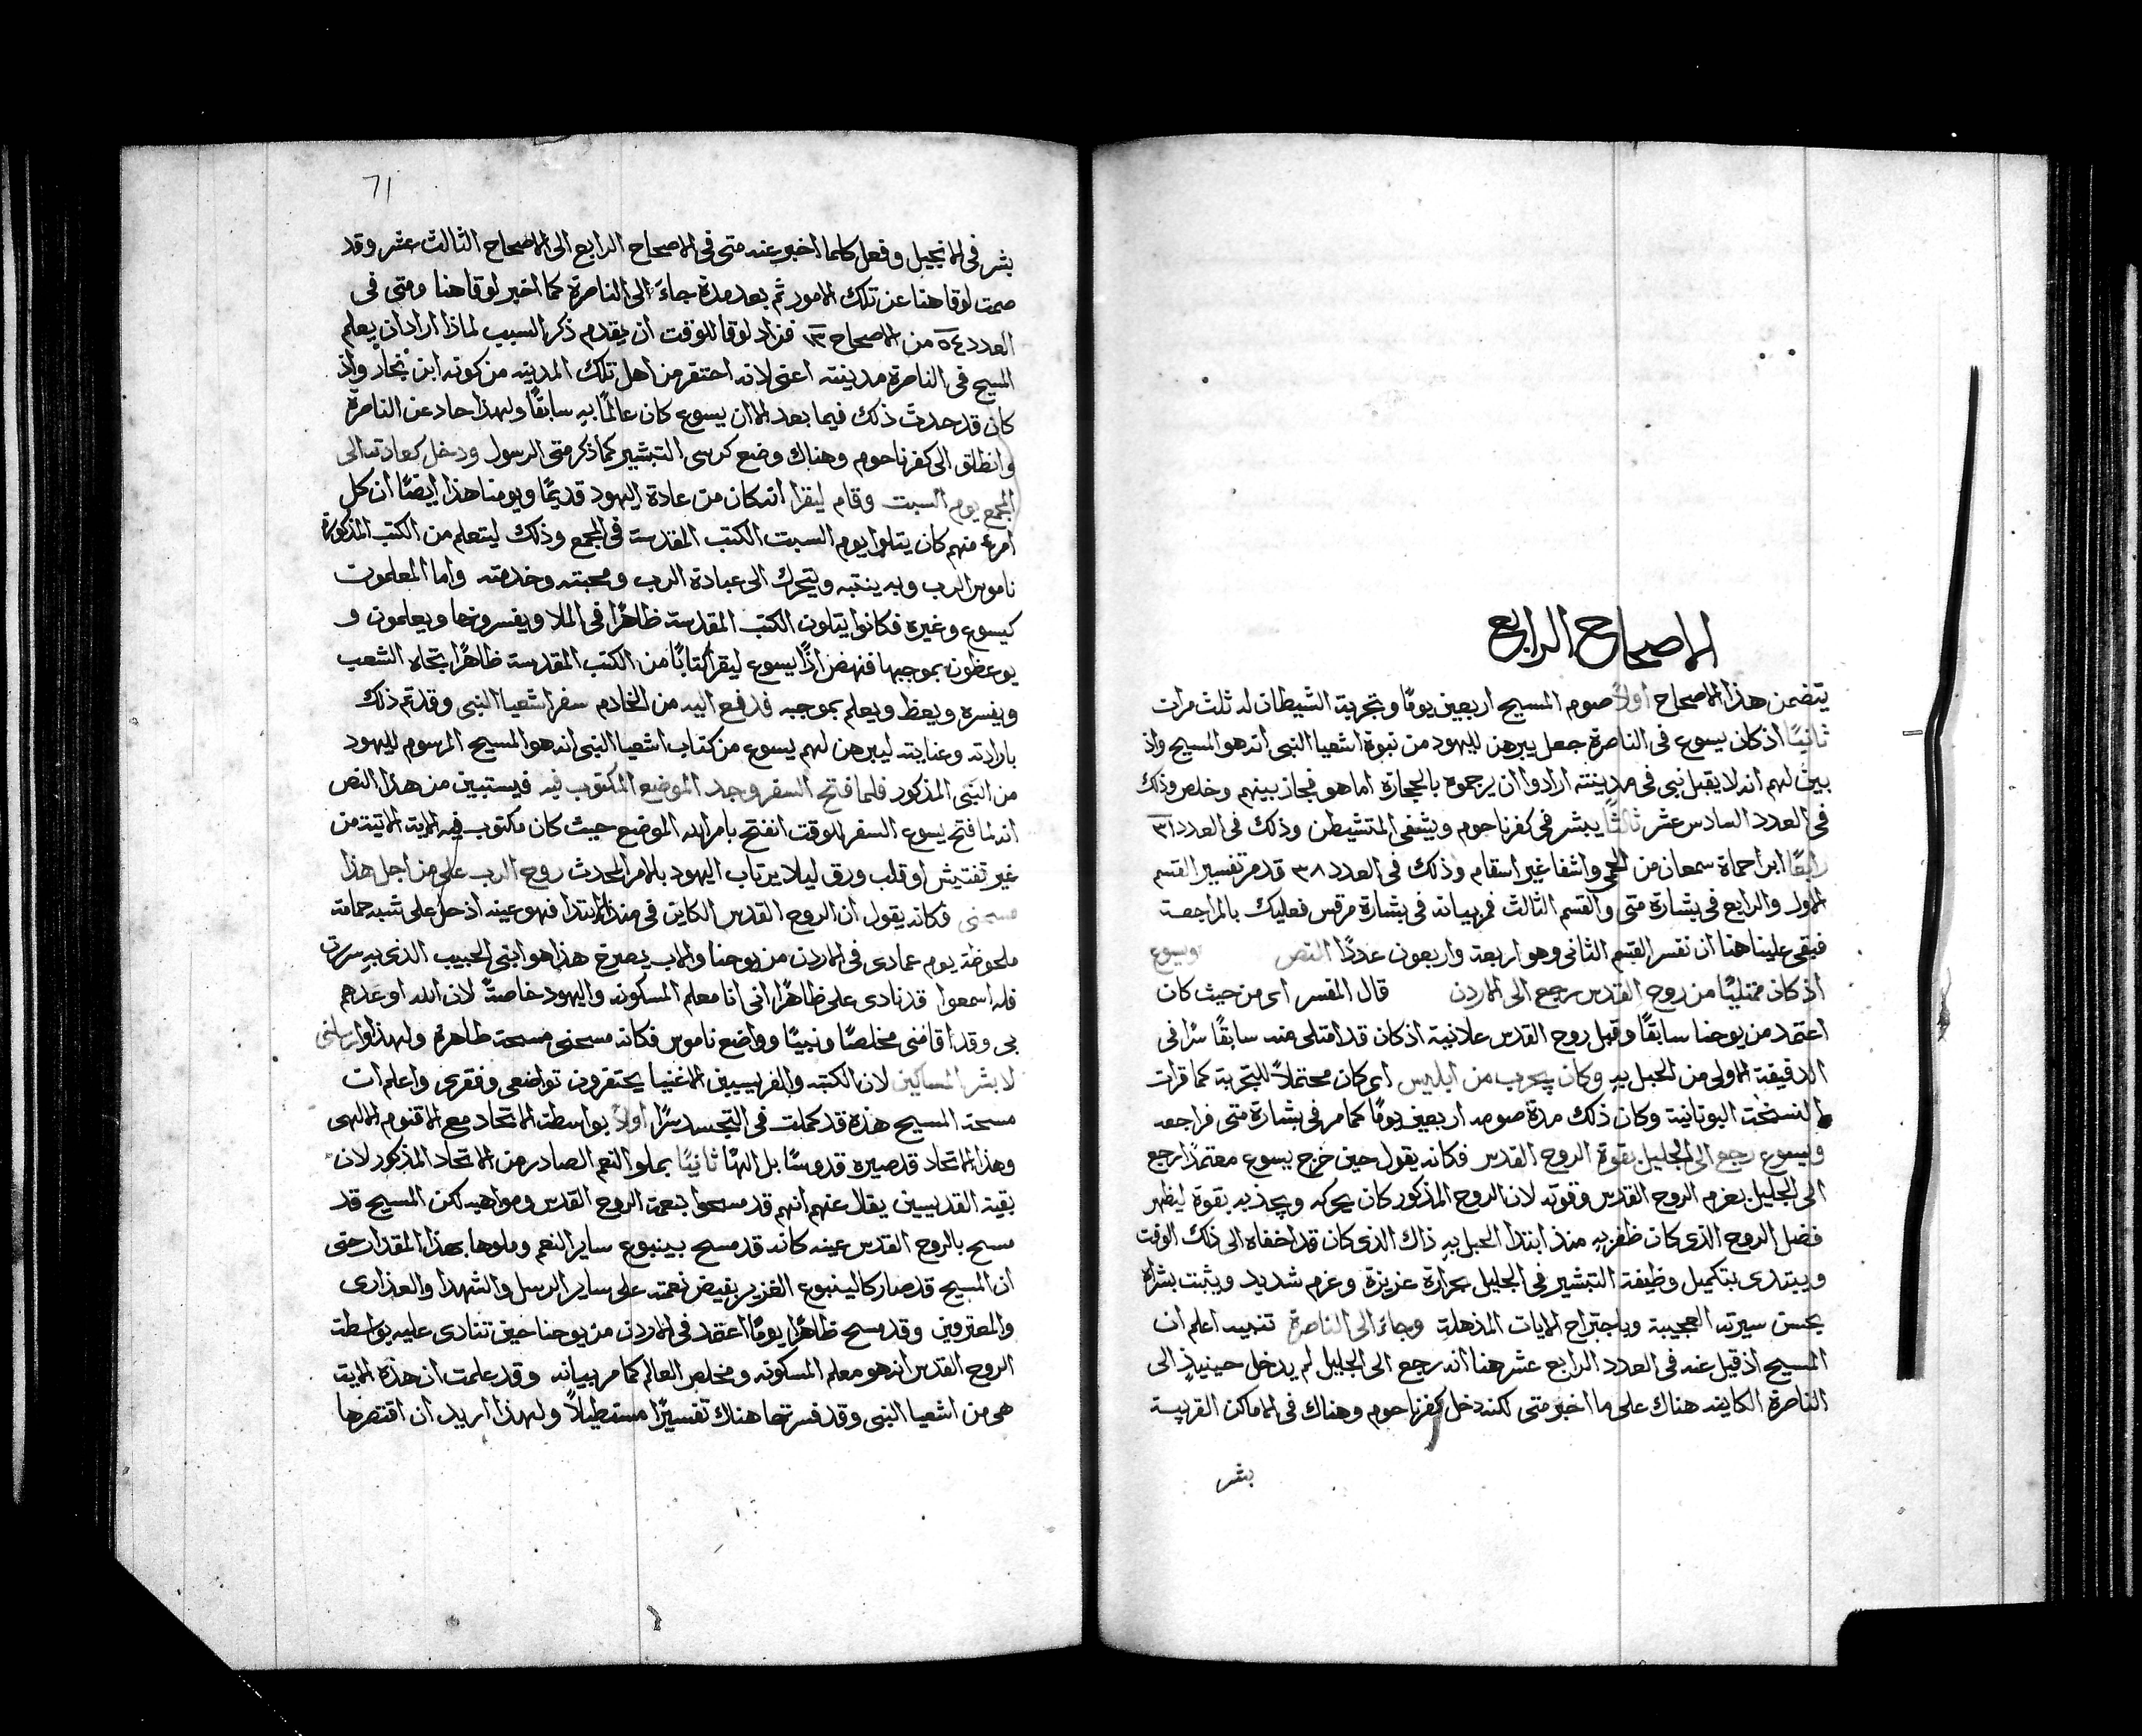 الاصحاح الرابع
يتضمن هذا الاصحاح اولاً صوم المسيح اربعين يومًا وتجربة الشيطان له ثلث مرات
ثانيًا اذ كان يسوع في الناصرة جعل يبرهن لليهود من نبوة اشعيا النبي انه هو المسيح واذ
بين لهم انه لا يقبل نبي في مدينته ارادوا ان يرجموه بالحجارة اما هو فجاز بينهم وخلص وذلك
في العدد السادس عشر ثالثًا يبشر في كفرناحوم ويشفي المتشيطن وذلك في العدد ٣١
رابعًا ابرا حماة سمعان من الحمى واشفا غير اسقام وذلك في العدد ٣٨ قد مر تفسير القسم
الاول والرابع في بشارة متى والقسم الثالث مر بيانه في بشارة مرقس فعليك بالمراجعة
فبقى علينا هنا ان نفسر القسم الثاني وهو اربعة واربعون عددًا النص ويسوع
اذ كان ممتليًا من روح القدس رجع الى الاردن قال المفسر اى من حيث كان
اعتمد من يوحنا سابقًا وقبل روح القدس علانية اذ كان قد امتلى منه سابقًا سرًا في
الدقيقة الاولى من الحبل به وكان يجرب من ابليس اى كان محتملاً للتجربة كما قرات
النسخة اليونانية وكان ذلك مدة صومه اربعين يومًا كما مر في بشارة متى فراجعه
ويسوع رجع الى الجليل بقوة الروح القدس فكانه يقول حين خرج يسوع معتمدًا رجع
الى الجليل بعزم الروح القدس وقوته لان الروح المذكور كان يحركه ويجذبه بقوة ليظهر
فضل الروح الذى كان ظفر به منذ ابتدا الحبل به ذاك الذى كان قد اخفاه الى ذلك الوقت
ويبتدى بتكميل وظيفة التبشير في الجليل بحرارة عزيزة وعزم شديد ويثبت بشراه
بحسن سيرته العجيبة وباجتراح الايات المذهلة وجاء الى الناصرة تنبيه اعلم ان
المسيح اذ قيل عنه في العدد الرابع عشر هنا انه رجع الى الجليل لم يدخل حينيذٍ الى
الناصرة الكاينه هناك على ما اخبر متى لكنه دخل كفرناحوم وهناك في الاماكن القريبة
بشر
71
بشر في الانجيل وفعل كلما اخبر عنه متى في الاصحاح الرابع الى الاصحاح الثالث عشر وقد
صمت لوقا هنا عن تلك الامور ثم بعد مدة جاءَ الى الناصرة كما اخبر لوقا هنا ومتى في
العدد ٥٤ من الاصحاح ١٣ فزاد لوقا للوقت ان يقدم ذكر السبب لماذا اراد ان يعلم
المسيح في الناصرة مدينته اعني لانه احتقر من اهل تلك المدينه من كونه ابن نجار واذ
كان قد حدث ذلك فيما بعد الا ان يسوع كان عالمًا به سابقًا ولهذا حاد عن الناصرة
وانطلق الى كفرناحوم وهناك وضع كرسى التبشير كما ذكر متى الرسول ودخل كعادته الى
المجمع يوم السبت وقام ليقرا انه كان من عادة اليهود قديمًا ويومنا هذا ايضًا ان كل
امرء منهم كان يتلوا يوم السبت الكتب المقدسة في المجمع وذلك ليتعلم من الكتب المذكورة
ناموس الرب وبه ينتبه ويتحرك الى عبادة الرب ومحبته وخدمته واما المعلمون
كيسوع وغيره فكانوا يتلون الكتب المقدسة ظاهرًا في الملا ويفسرونها ويعلمون و
يوعظون بموجبها فنهض اذًا يسوع ليقرا كتابًا من الكتب المقدسة ظاهرًا تجاه الشعب
ويفسره ويعظ ويعلم بموجبه فدفع اليه من الخادم سفر اشعيا النبي وقد تم ذلك
بارادته وعنايته ليبرهن لهم يسوع من كتاب اشعيا النبي انه هو المسيح المرسوم لليهود
من النبي المذكور فلما فتح السفر وجد الموضع المكتوب فيه فيستبين من هذا النص
انه لما فتح يسوع السفر للوقت انفتح بامر الله الموضع حيث كان مكتوب فيه الاية الاتية من
غير تفتيش او قلب ورق ليلا يرتاب اليهود بالامر المحدث روح الرب علي من اجل هذا
مسحني فكانه يقول ان الروح القدس الكاين في منذ الابتدا فهو عينه اذ حل على شبه حمامة
ملحوظة يوم عمادى في الاردن من يوحنا والاب يصرخ هذا هو ابني الحبيب الذى به سررت
فله اسمعوا قد نادى على ظاهرًا اني انا معلم المسكونه واليهود خاصةً لان الله اوعدهم
بي وقد اقامني مخلصًا ونبيًا وواضع ناموس فكانه مسحني مسحة ظاهرة ولهذا وارسلني
لابشر المساكين لان الكتبه والفريسيين الاغنيا يحتقرون تواضعى وفقرى واعلم ان
مسحة المسيح هذه قد كملت في التجسد سرًا اولاً بواسطة الاتحاد مع الاقنوم الالهى
وهذا الاتحاد قد صيره قدوسًا بل الهًا ثانيًا بملو النعم الصادر من الاتحاد المذكور لان
بقية القديسين يقال عنهم انهم قد مسحوا بنعمة الروح القدس ومواهبه لكن المسيح قد
مسح بالروح القدس عينه كانه قد مسح بينبوع ساير النعم وملوها بهذا المقدار حتى
ان المسيح قد صار كالينبوع الغزير يفيض نعمته على ساير الرسل والشهدا والعذارى
والمعترفين وقد مسح ظاهرًا يوم اعتمد في الاردن من يوحنا حين تنادى عليه بواسطة
الروح القدس انه هو معلم المسكونه ومخلص العالم كما مر بيانه وقد علمت ان هذه الاية
هى من اشعيا النبي وقد فسرتها هناك تفسيرًا مستطيلاً ولهذا اريد ان اقتصرها